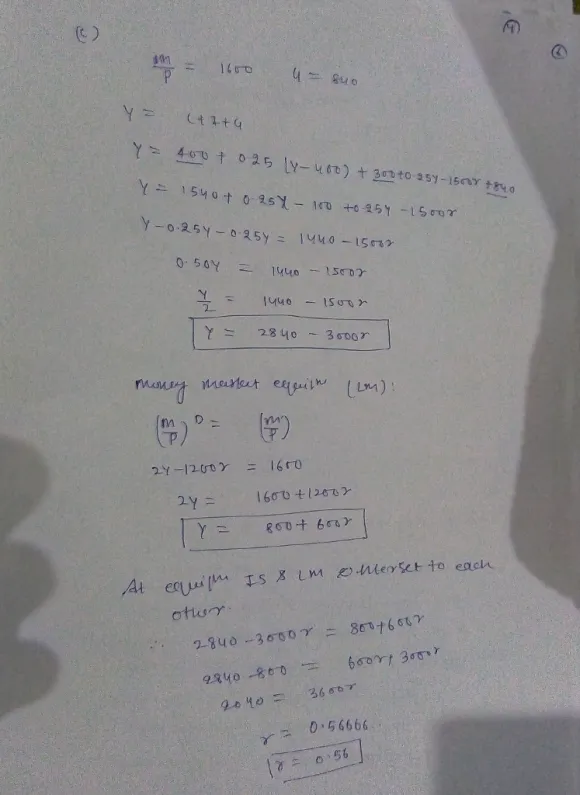 (c)
(4)
(6)
m/p = 1600 G = 840
Y = C+I+G
Y = 400 + 0.25 (Y-400) + 300+0.25Y-1500r+840
Y = 1540 + 0.25Y - 100 +0.25Y -1500r
Y-0.25Y-0.25Y = 1440-1500r
0.50Y = 1440 - 1500r
Y/2 = 1440 - 1500r
Y = 2840 - 3000r
money market equim (LM):
(m/p)^D = (m/p)
2Y-1200r = 1600
2Y = 1600+1200r
Y = 800+ 600r
At equim IS & LM intersect to each
other.
∴ 2840-3000r = 800+600r
2840-800 = 600r+3000r
2040 = 3600r
r = 0.56666..
r = 0.56